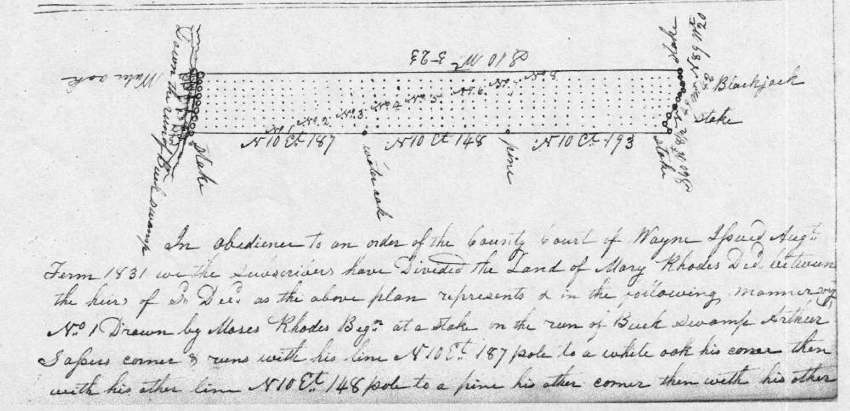 S 10 Wt
3-23
Water oak
Down the run of Buck swamp
stake
No 1
No. 2
No. 3
No. 4
No. 5
No. 6
No. 7
No. 8
N 10 Et. 187
N 10 Et 148
N 10 Et. 193
water oak
pine
stake
Stake
N 89 Wt 20
Blackjack
Stake
In obedience to an order of the County Court of Wayne Issued Augt.
Term 1831 we the subscribers have Divided the Land of Mary Rhodes Decd. between
the heirs of sd. Decd. as the above plan represents & in the following manner viz
No 1 Drawn by Moses Rhodes Begn. at a stake on the run of Buck swamp Arthur
Sapers corner & runs with his line N 10 Et. 187 pole to a white oak his corner then
with his other line N 10 Et. 148 pole to a pine his other corner then with his other